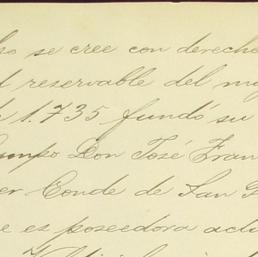 se cree con derecho
reservable del
1.735 fundó su
Campo Don José Fran
er Conde de San
e es poseedora actu